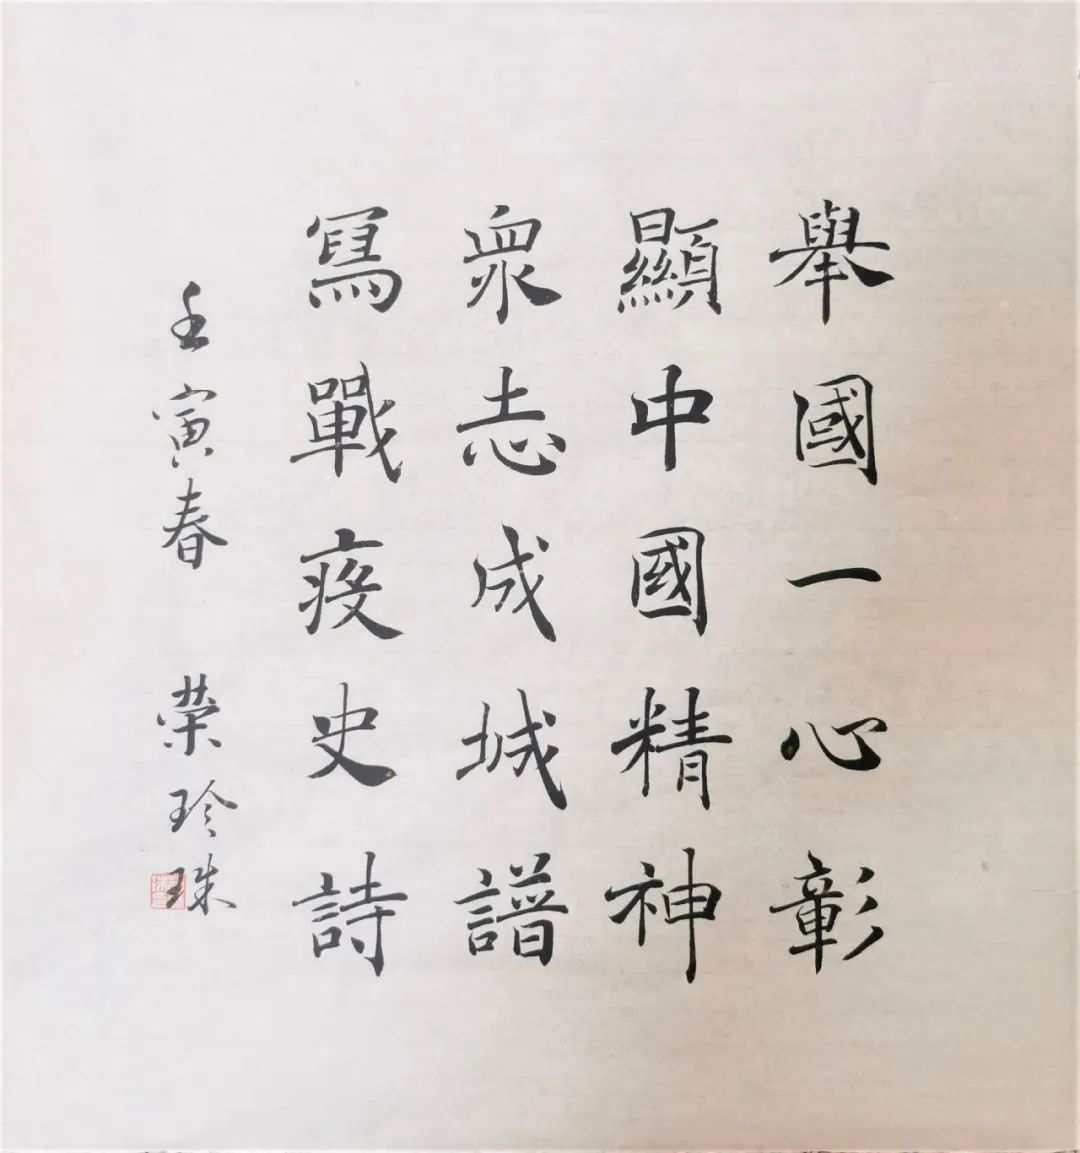 舉國一心彰
顯中國精神
眾志成城譜
寫戰疫史詩
壬寅春 榮珍珠